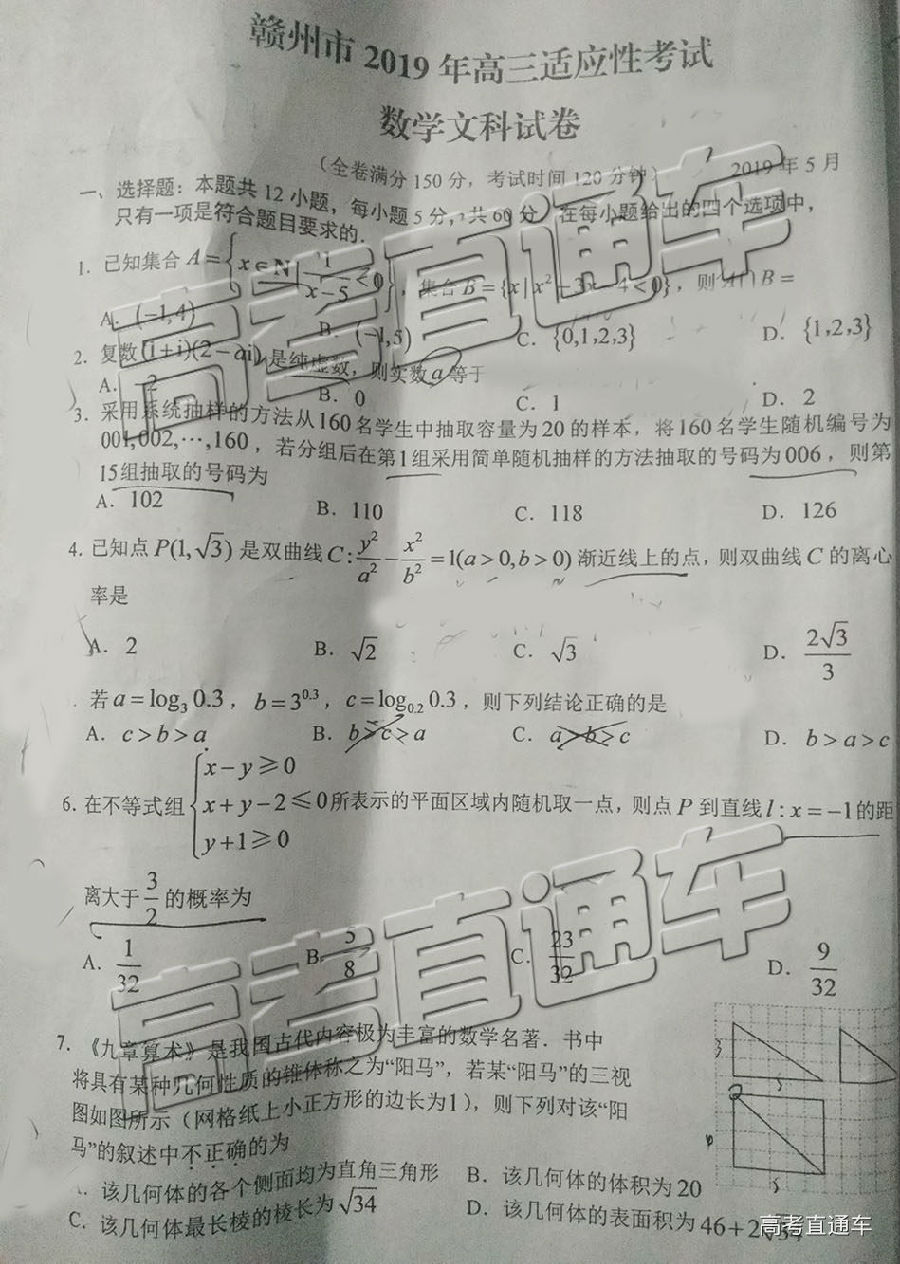 赣州市2019年高三适应性考试
数学文科试卷
〔全卷满分150分，考试时间120分钟〕 2019年5月
一、选择题：本题共12小题，每小题5分，共60分。在每小题给出的四个选项中，
只有一项是符合题目要求的.
1. 已知集合A={x∈N|1/(x-5)<0}，集合B={x|x²-3x-4<0}，则A∩B=
A. (-1,4) B. (-1,5) C. {0,1,2,3} D. {1,2,3}
2. 复数(1+i)(2-ai)是纯虚数，则实数a等于
A. 2 B. 0 C. 1 D. 2
3. 采用系统抽样的方法从160名学生中抽取容量为20的样本，将160名学生随机编号为
001,002,⋯,160，若分组后在第1组采用简单随机抽样的方法抽取的号码为006，则第
15组抽取的号码为
A. 102 B. 110 C. 118 D. 126
4. 已知点P(1,√3)是双曲线C:y²/a²-x²/b²=1(a>0,b>0)渐近线上的点，则双曲线C的离心
率是
A. 2 B. √2 C. √3 D. 2√3/3
若a=log₃0.3，b=3^0.3，c=log_0.2 0.3，则下列结论正确的是
A. c>b>a B. b>c>a C. a>b>c D. b>a>c
6. 在不等式组{x-y≥0
x+y-2≤0所表示的平面区域内随机取一点，则点P到直线l:x=-1的距
y+1≥0
离大于3/2的概率为
A. 1/32 B. 5/8 C. 23/32 D. 9/32
7. 《九章算术》是我国古代内容极为丰富的数学名著．书中
将具有某种几何性质的锥体称之为“阳马”，若某“阳马”的三视
图如图所示（网格纸上小正方形的边长为1），则下列对该“阳
马”的叙述中不正确的为
该几何体的各个侧面均为直角三角形 B. 该几何体的体积为20
C. 该几何体最长棱的棱长为√34 D. 该几何体的表面积为46+2√34
高考直通车
高考直通车
高考直通车